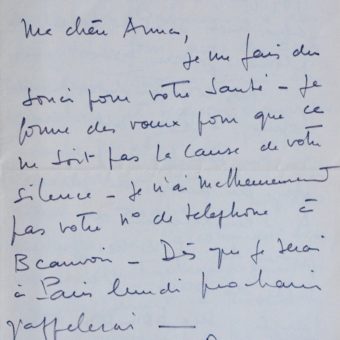 Ma chère Anna,
je me fais du
souci pour votre santé – je
forme des vœux pour que ce
ne soit pas la cause de votre
silence – je n'ai malheureusement
pas votre n° de telephone à
Beauvoir – Dès que je serai
à Paris lundi prochain
j'appellerai —